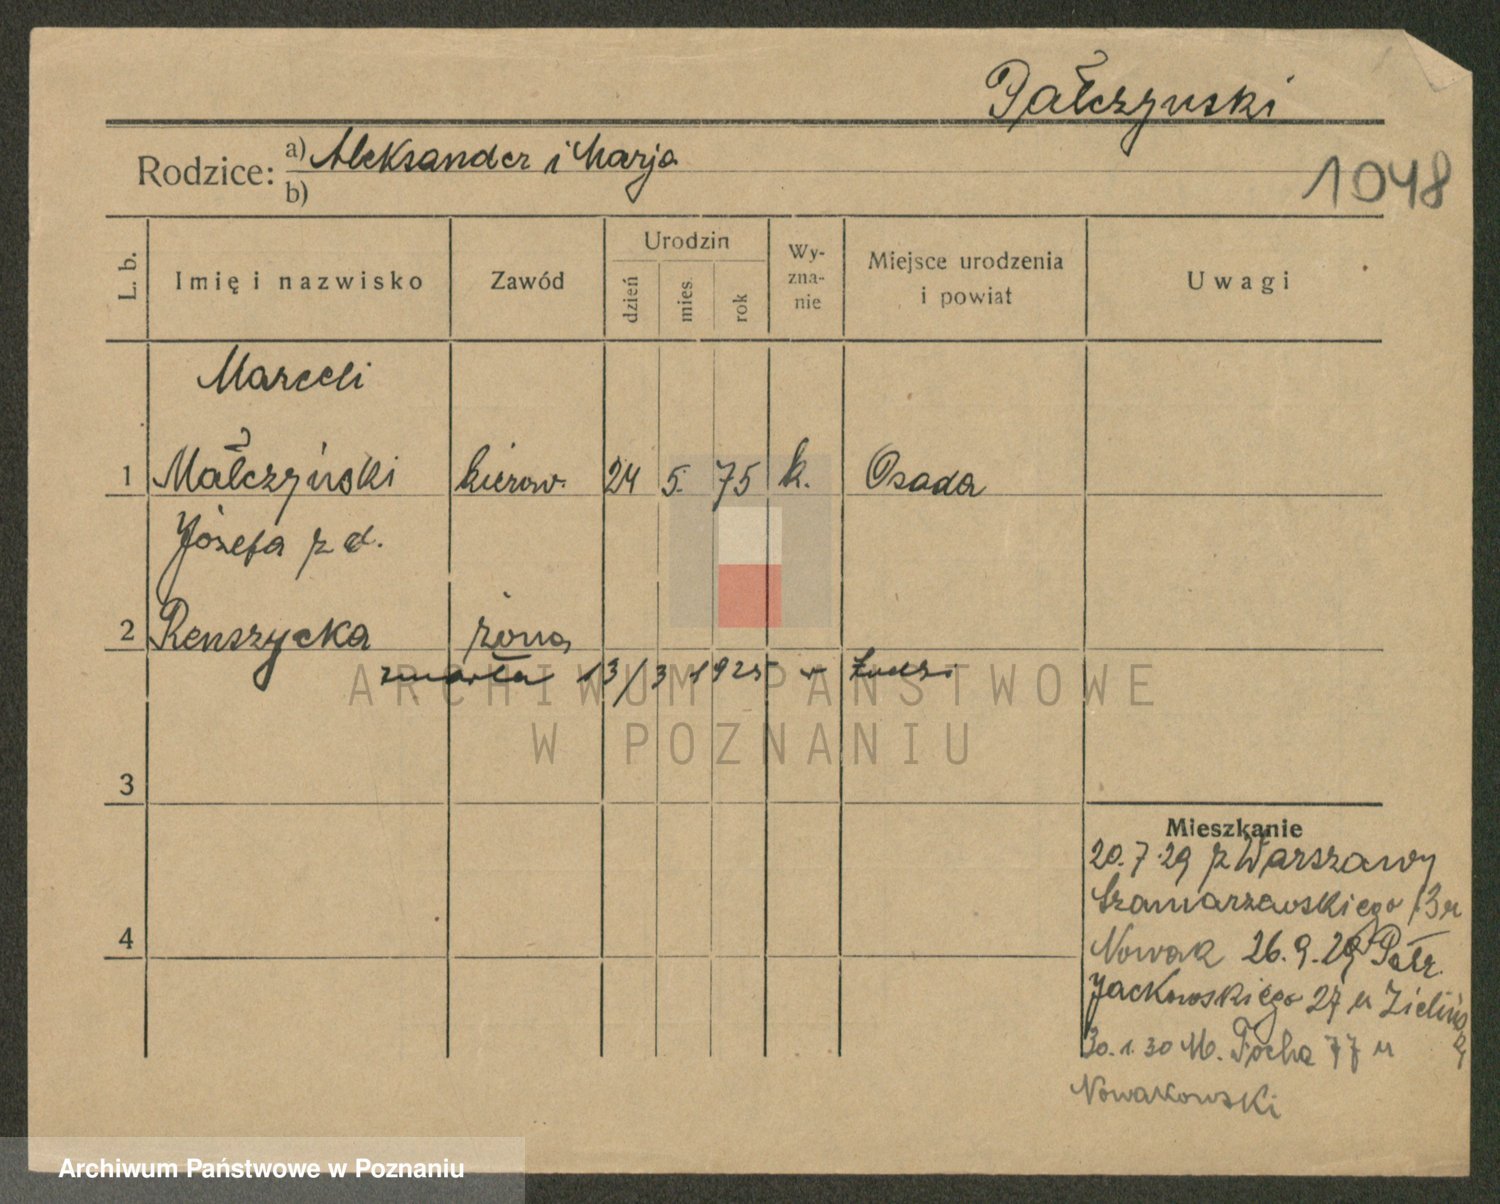 Pałczyuski
Rodzice:
a) Aleksander i Marja
b)
1048
L. b.
Imię i nazwisko
Zawód
Urodzin
dzień
mies.
rok
Wy-
zna-
nie
Miejsce urodzenia
i powiat
Uwagi
Marceli
1 Małczyński kierow. 24 5. 75 k. Osada
Józefa z d.
2 Renszycka żona
zmarła 13/3 1925 w Łodzi
3
4
Mieszkanie
20.7.29 z Warszawy
Szamarzewskiego 13 u
Nowak 26.9.29
Jackowskiego 27 u Zielińs
30.1.30 M. Focha 77 u
Nowakowski
ARCHIWUM PAŃSTWOWE
W POZNANIU
Archiwum Państwowe w Poznaniu